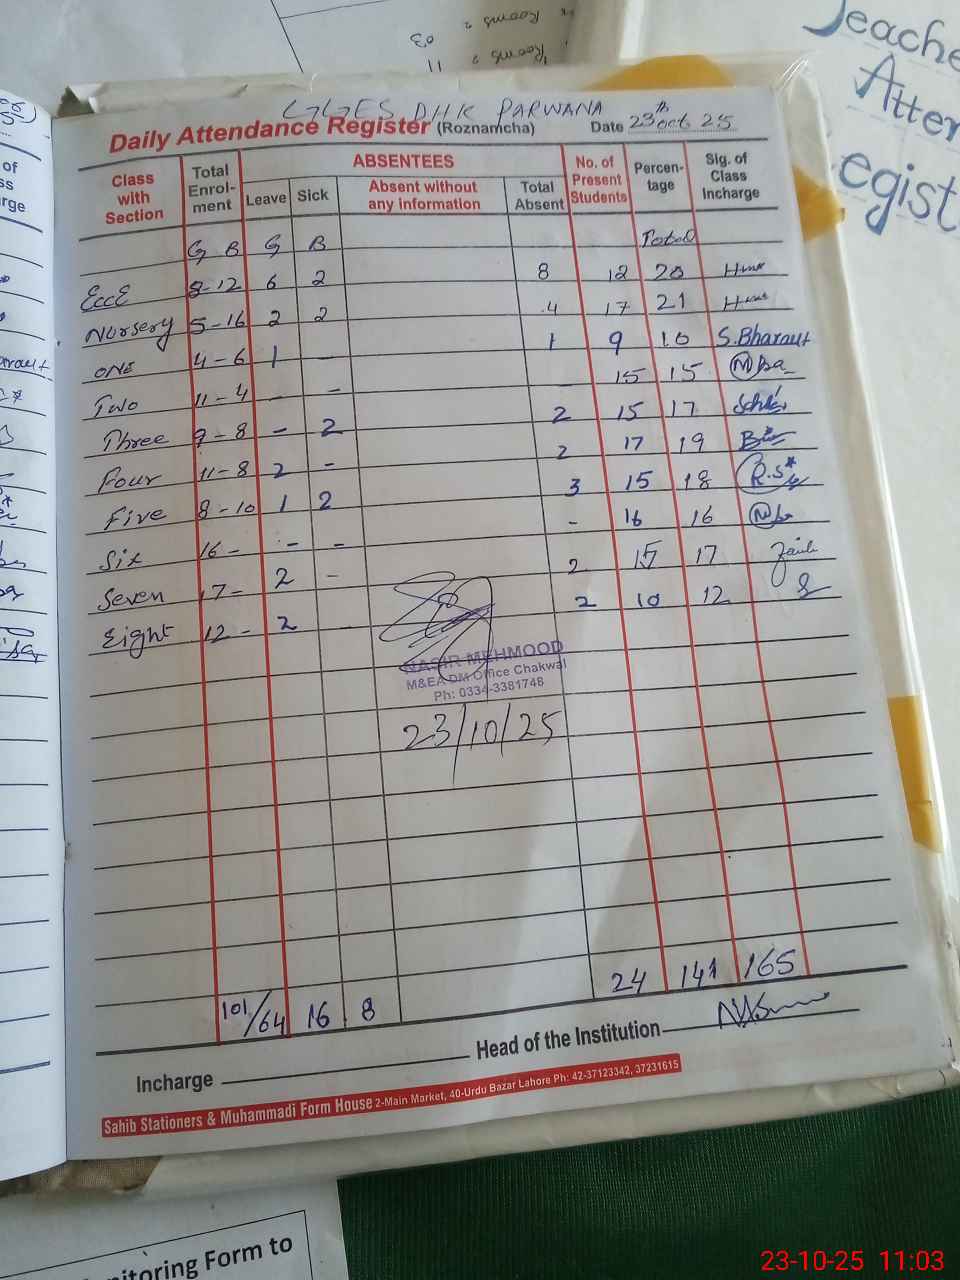 GGES DHK PARWANA
Daily Attendance Register (Roznamcha) Date 23th oct 25
Class with Section Total Enrol-ment ABSENTEES Leave Sick Absent without any information Total Absent No. of Present Students Percen-tage Sig. of Class Incharge
G B G B Total
EccE 8-12 6 2 8 12 20
Nursery 5-16 2 2 4 17 21
one 4-6 1 - 1 9 10 S.Bharaut
Two 11-4 - - - 15 15
Three 9-8 - 2 2 15 17
Four 11-8 2 - 2 17 19
Five 8-10 1 2 3 15 18 R.S*
Six 16- - - - 16 16
Seven 17- 2 - 2 15 17
Eight 12- 2 2 10 12
NASIR MEHMOOD
M&EA DM Office Chakwal
Ph: 0334-3381748
23/10/25
101/64 16 8 24 141 165
Incharge Head of the Institution
Sahib Stationers & Muhammadi Form House 2-Main Market, 40-Urdu Bazar Lahore Ph: 42-37123342, 37231615
Rooms = 03
Rooms = 11
Teache
Atten
egist
of
ss
rge
nitoring Form to
23-10-25 11:03